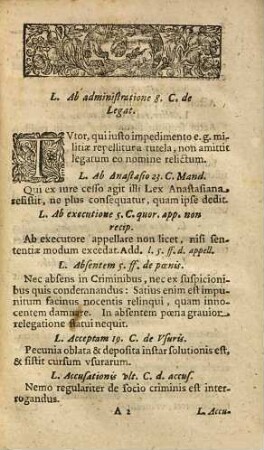 L. Ab administratione 8. C. de
Legat.
TVtor, qui iusto impedimento e. g. mi-
litiæ repellitur a tutela, non amittit
legatum eo nomine relictum.
L. Ab Anastasio 23. C. Mand.
Qui ex iure cesso agit illi Lex Anastasiana
resistit, ne plus consequatur, quam ipse dedit.
L. Ab executione 5. C. quor. app. non
recip.
Ab executore appellare non licet, nisi sen-
tentiæ modum excedat. Add. l. 5. ff. d. appell.
L. Absentem 5. ff. de pœnis.
Nec absens in Criminibus, nec ex suspicioni-
bus quis condemnandus: Satius enim est impu-
nitum facinus nocentis relinqui, quam inno-
centem damnare. In absentem pœna gravior
relegatione statui nequit.
L. Acceptam 19. C. de Vsuris.
Pecunia oblata & deposita instar solutionis est,
& sistit cursum vsurarum.
L. Accusationis vlt. C. d. accus.
Nemo regulariter de socio criminis est inter-
rogandus.
A 2 L. Accu-